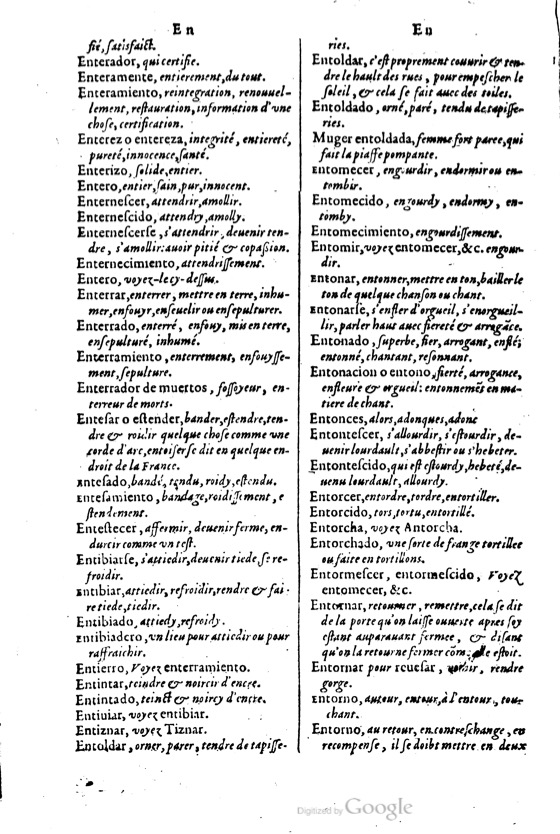 En
fié, satisfaict.
Enterador, qui certifie.
Enteramente, entierement, du tout.
Enteramiento, reintegration, renouuel-
lement, restauration, information d'vne
chose, certification.
Enterez o entereza, integrité, entiereté,
pureté, innocence, santé.
Enterizo, solide, entier.
Entero, entier, sain, pur, innocent.
Enternescer, attendrir, amollir.
Enternescido, attendry, amolly.
Enternescerse, s'attendrir, deuenir ten-
dre, s'amollir: auoir pitié & copassion.
Enternecimiento, attendrissement.
Entero, voyez-le cy-dessus.
Enterrar, enterrer, mettre en terre, inhu-
mer, enfouyr, enseuelir ou ensepulturer.
Enterrado, enterré, enfouy, mis en terre,
ensepulturé, inhumé.
Enterramiento, enterrement, enfouysse-
ment, sepulture.
Enterrador de muertos, fossoyeur, en-
terreur de morts.
Entesar o estender, bander, estendre, ten-
dre & roidir quelque chose comme vne
corde d'arc, entoiser se dit en quelque en-
droit de la France.
Entesado, bandé, tendu, roidy, estendu.
Entesamiento, bandage, roidissement, e
stendement.
Entestecer, affermir, deuenir ferme, en-
durcir comme vn test.
Entibiarse, s'attiedir, deuenir tiede, se re-
froidir.
Entibiar, attiedir, refroidir, rendre & fai-
re tiede, tiedir.
Entibiado, attiedy, refroidy.
Entibiadero, vn lieu pour attiedir ou pour
raffraichir.
Entierro, Voyez enterramiento.
Entintar, teindre & noircir d'encre.
Entintado, teinct & noircy d'encre.
Entiuiar, voyez entibiar.
Entiznar, voyez Tiznar.
Entoldar, orner, parer, tendre de tapisse-
En
ries.
Entoldar, c'est proprement couurir & ten-
dre le hault des rues, pour empescher le
soleil, & cela se fait auec des toiles.
Entoldado, orné, paré, tendu de tapisse-
ries.
Muger entoldada, femme fort paree, qui
fait la piaffe pompante.
Entomecer, engourdir, endormir ou en-
tombir.
Entomecido, engourdy, endormy, en-
tomby.
Entomecimiento, engourdissement.
Entomir, voyez entomecer, &c. engour-
dir.
Entonar, entonner, mettre en ton, bailler le
ton de quelque chanson ou chant.
Entonarse, s'enfler d'orgueil, s'enorgueil-
lir, parler haut auec fiereté & arrogãce.
Entonado, superbe, fier, arrogant, enflé;
entonné, chantant, resonnant.
Entonacion o entono, fierté, arrogance,
enfleure & orgueil: entonnemẽs en ma-
tiere de chant.
Entonces, alors, adonques, adonc
Entontescer, s'allourdir, s'estourdir, de-
uenir lourdault, s'abbestir ou s'hebeter.
Entontescido, qui est estourdy, hebeté, de-
uenu lourdault, allourdy.
Entorcer, entordre, tordre, entortiller.
Entorcido, tors, tortu, entortillé.
Entorcha, voyez Antorcha.
Entorchado, vne sorte de frange tortillee
ou faite en tortillons.
Entormescer, entormescido, Voyez
entomecer, &c.
Entornar, retourner, remettre, cela se dit
de la porte qu'on laisse ouuerte apres soy
estant auparauant fermee, & disant
qu'on la retourne fermer cõme elle estoit.
Entornar pour reuesar, vomir, rendre
gorge.
Entorno, autour, entour, à l'entour, tou-
chant.
Entorno, au retour, en contreschange, en
recompense, il se doibt mettre en deux
Digitized by Google